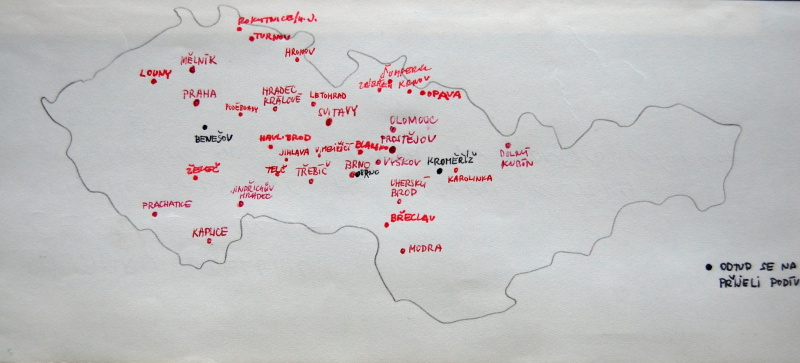 ROKYTNICE/N.J.
TURNOV
HRONOV
MĚLNÍK
LOUNY
ŠUMPERK
ZÁBŘEH KRNOV
OPAVA
PRAHA
PODĚBRADY
HRADEC
KRÁLOVÉ
LETOHRAD
SVITAVY
OLOMOUC
BENEŠOV
HAVL. BROD
JIHLAVA
V. MEZIŘÍČÍ
BLANSKO
PROSTĚJOV
DOLNÝ
KUBÍN
TELČ
TŘEBÍČ
BRNO
BRNO
VYŠKOV
KROMĚŘÍŽ
KAROLINKA
JINDŘICHŮV
HRADEC
UHERSKÝ
BROD
PRACHATICE
KAPLICE
BŘECLAV
MODRA
ODTUD SE NA
PŘIJELI PODÍV